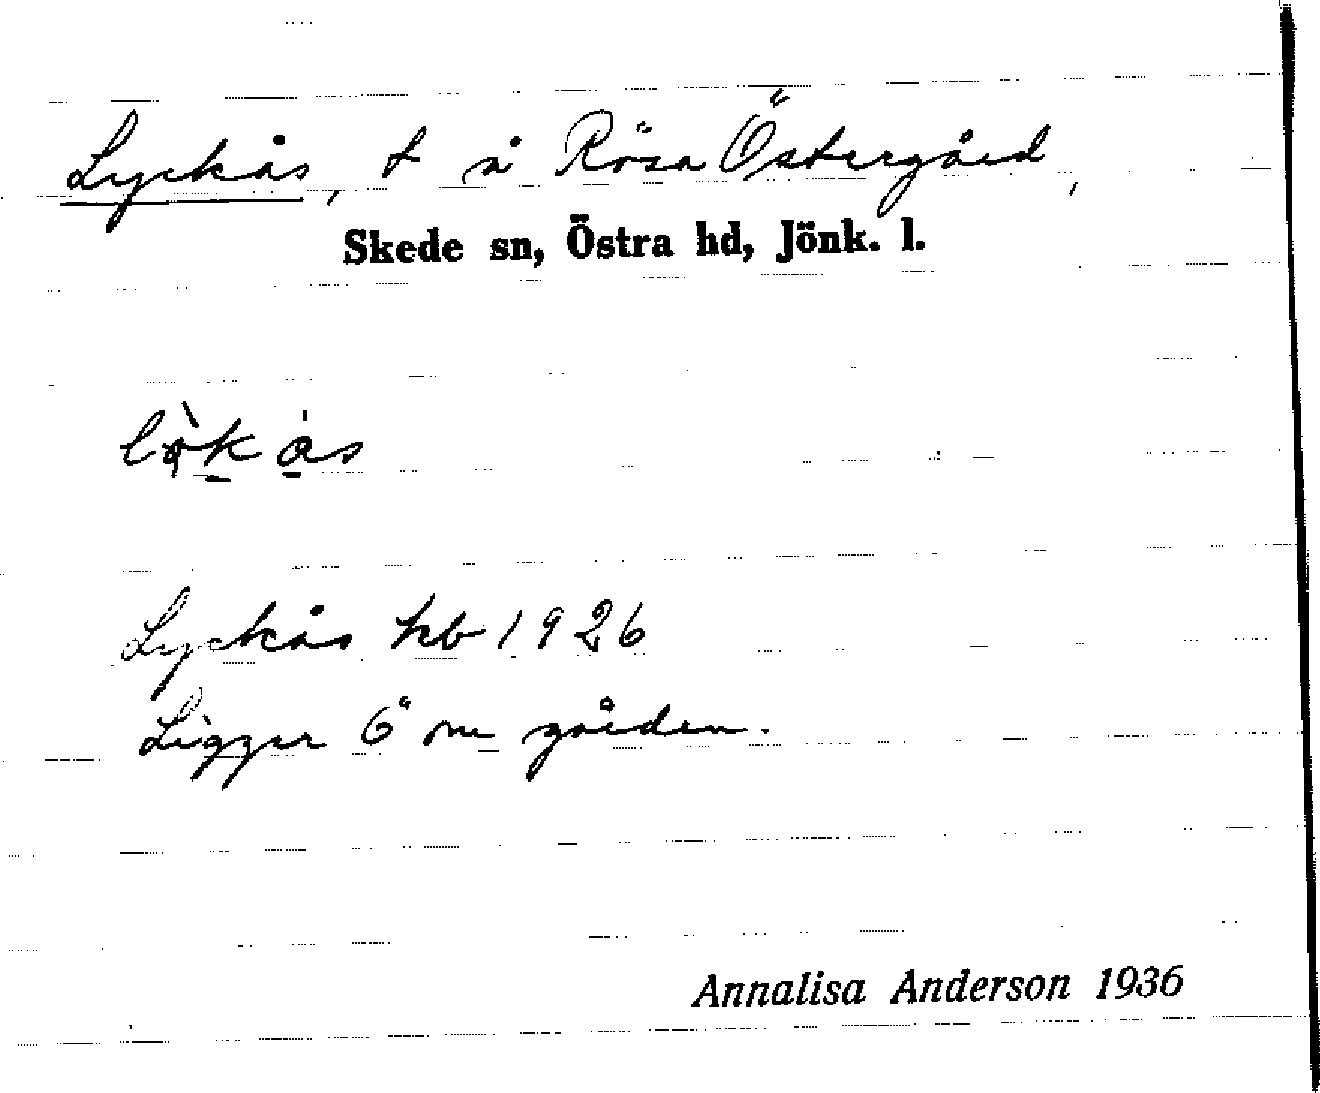 Lyckås, t å Rösa Östergård,
Skede sn, Östra hd, Jönk. l.
Lyckås hb 1926
Ligger Ö om gården.
Annalisa Anderson 1936